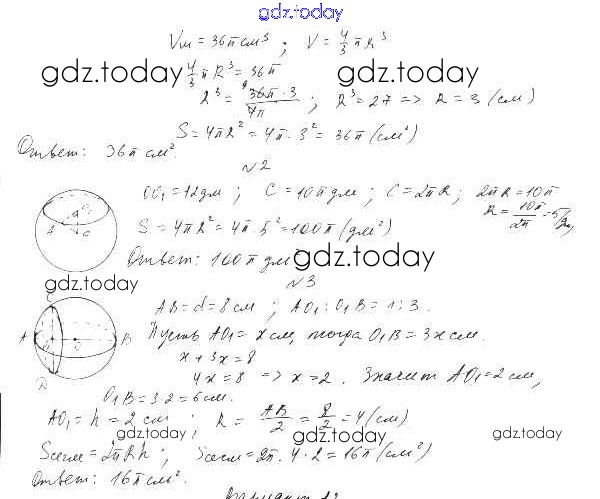 gdz.today
Vш = 36π см³ ; V = 4/3 πR³
4/3 πR³ = 36π
gdz.today gdz.today
R³ = 36π · 3 / 4π ; R³ = 27 => R = 3 (см)
S = 4πR² = 4π · 3² = 36π (см²)
Ответ: 36π см².
№2
OO₁ = 12 дм ; C = 10π дм ; C = 2πR ; 2πR = 10π
R = 10π / 2π = 5 (дм)
S = 4πR² = 4π · 5² = 100π (дм²)
Ответ: 100π дм²
gdz.today gdz.today
№3
AB = d = 8 см ; AO₁ : O₁B = 1 : 3.
Пусть AO₁ = x см, тогда O₁B = 3x см.
x + 3x = 8
4x = 8 => x = 2. Значит AO₁ = 2 см,
O₁B = 3 · 2 = 6 см.
AO₁ = h = 2 см ; R = AB / 2 = 8 / 2 = 4 (см)
gdz.today gdz.today gdz.today
Sсегм = 2πRh ; Sсегм = 2π · 4 · 2 = 16π (см²)
Ответ: 16π см².